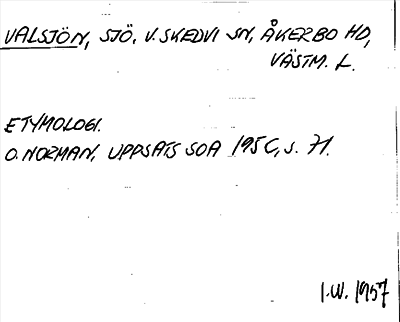 VALSJÖN, SJÖ. V. SKEDVI SN, ÅKERBO HD,
VÄSTM. L.
ETYMOLOGI.
O. NORMAN, UPPSATS SOA 195C, S. 71.
I.W. 1957